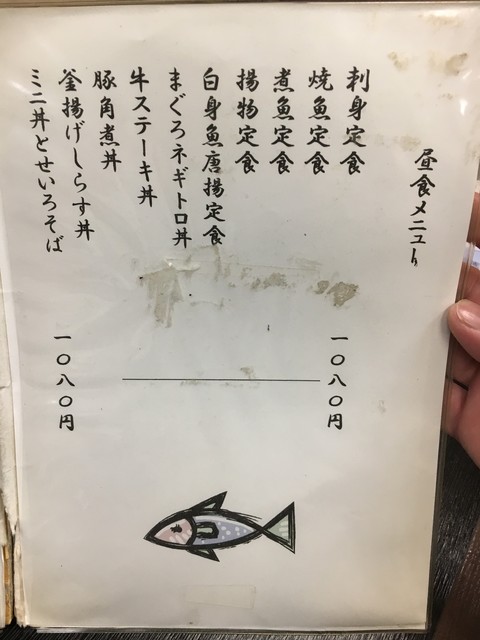 昼食メニュー
刺身定食
焼魚定食
煮魚定食
揚物定食
白身魚唐揚定食
まぐろネギトロ丼
牛ステーキ丼
豚角煮丼
釜揚げしらす丼
ミニ丼とせいろそば
一〇八〇円
一〇八〇円